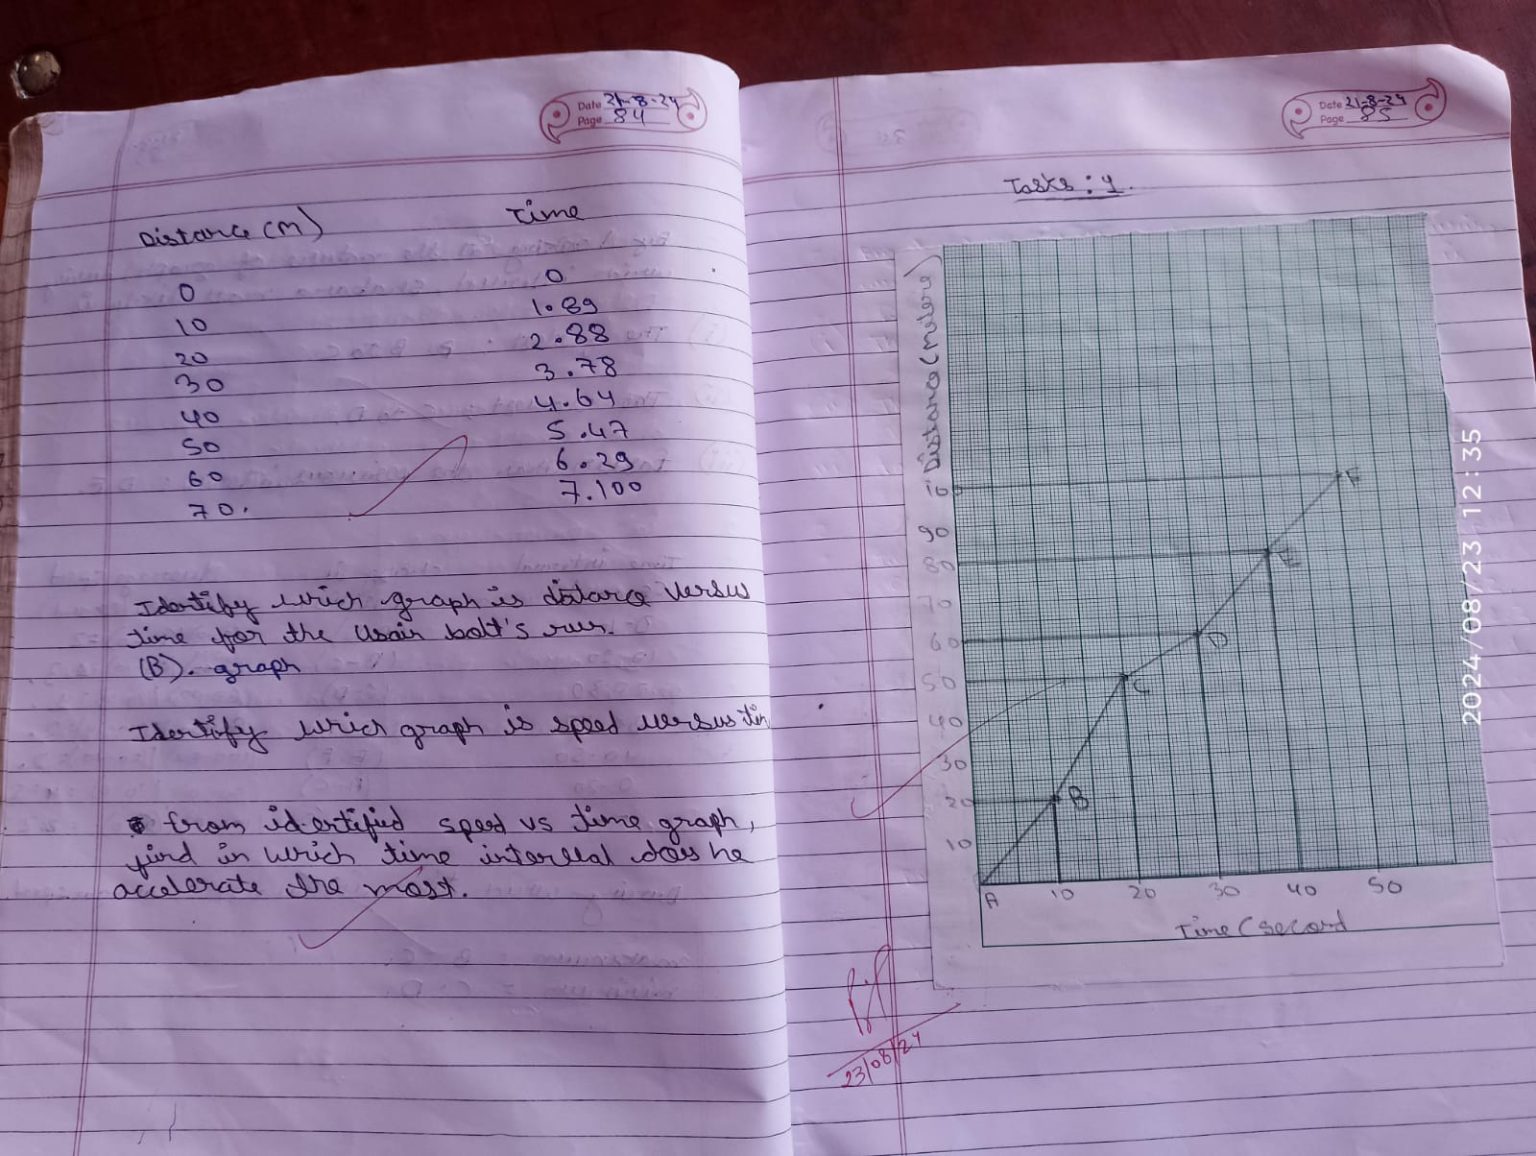 Date 21-8-24
Page 84
Distance (M) Time
0 0
10 1.89
20 2.88
30 3.78
40 4.64
50 5.47
60 6.29
70. 7.100
Identify which graph is distance versus
time for the Usain bolt's run.
(B). graph
Identify which graph is speed versus tim
from identified speed vs time graph,
find in which time interval does he
accelerate the most.
Date 21-8-24
Page 85
Tasks : 1.
Distance (Metere)
100
90
80
70
60
50
40
30
20
10
A
B
C
D
E
F
10 20 30 40 50
Time (Second
23/08/24
2024/08/23 12:35